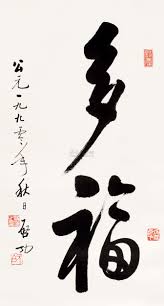 多福
公元一九九零年秋日启功